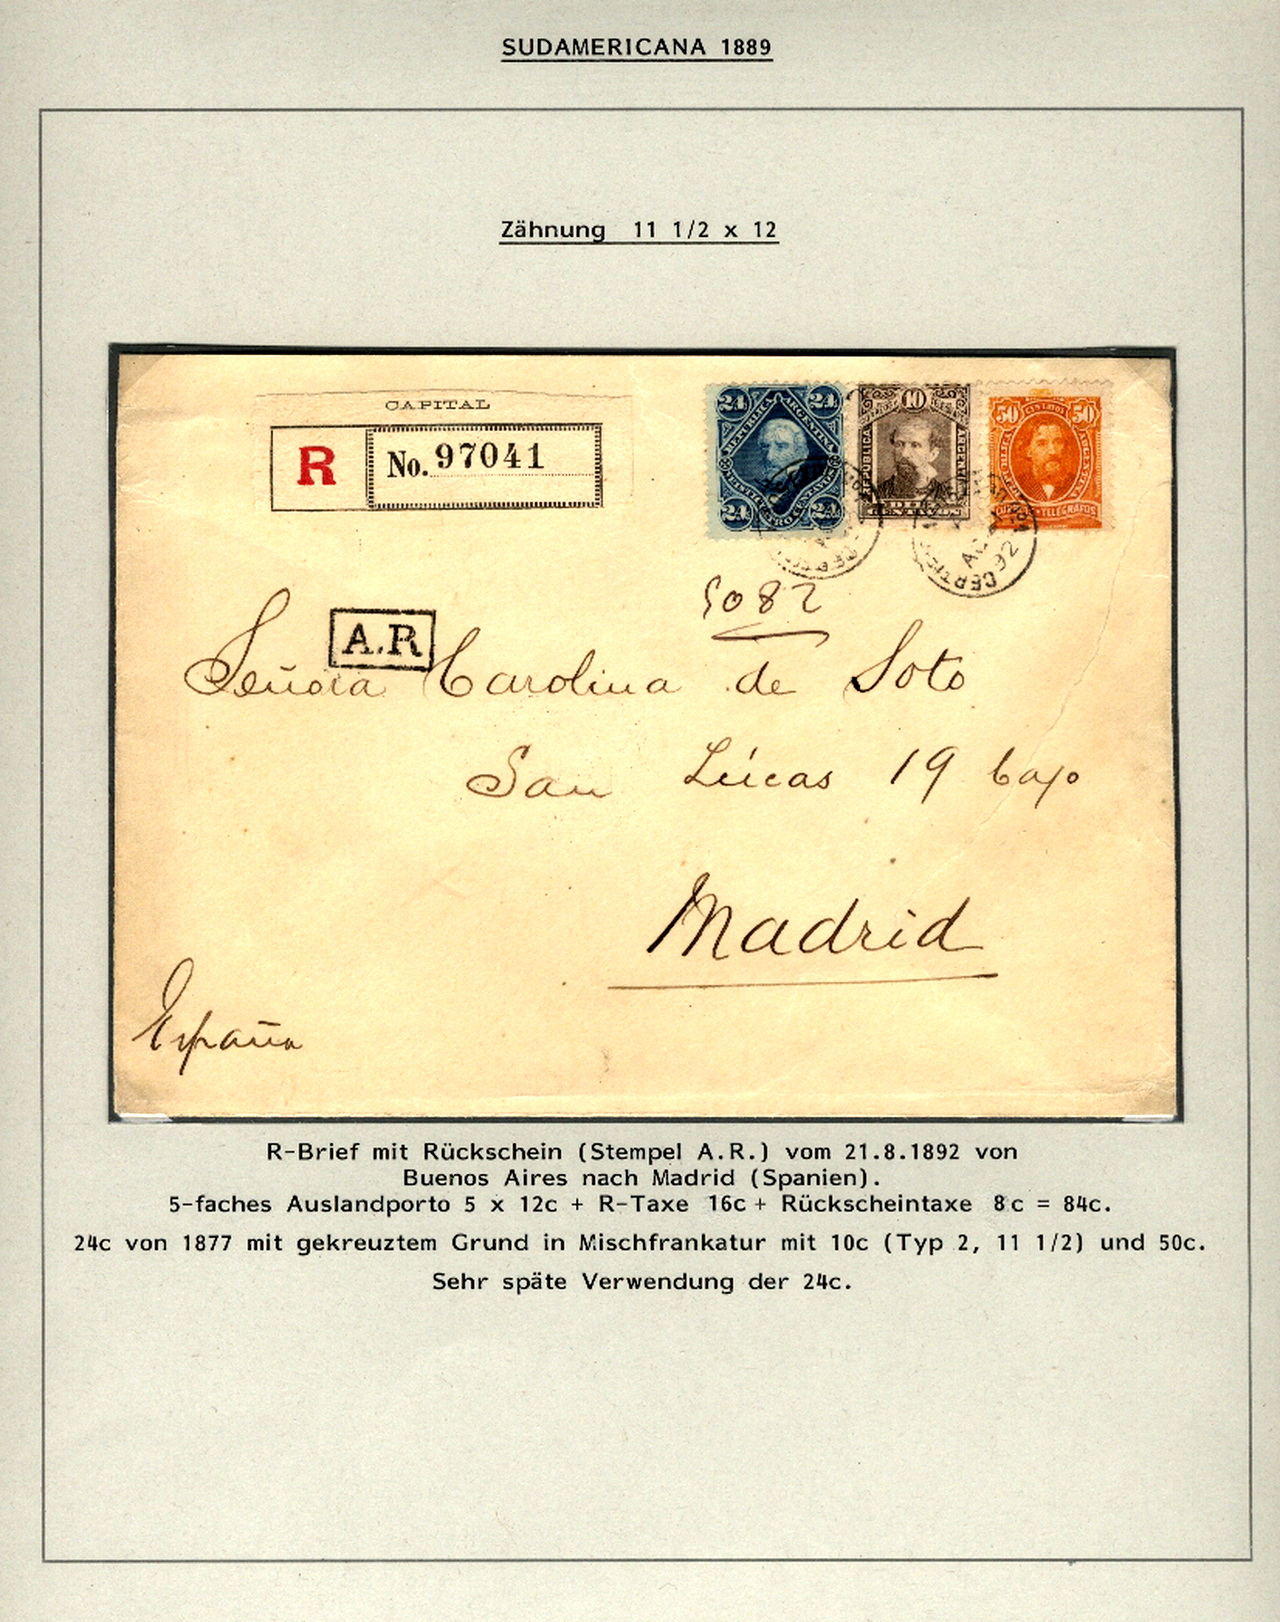 SUDAMERICANA 1889
Zähnung 11 1/2 x 12
CAPITAL
R No. 97041
24 24
REPUBLICA ARGENTINA
VEINTICUATRO CENTAVOS
24 24
10
REPUBLICA
50 CENTAVOS 50
REPUBLICA ARGENTINA
CORREOS Y TELEGRAFOS
92
5082
A.R
Señora Carolina de Soto
San Lúcas 19 bajo
Madrid
España
R-Brief mit Rückschein (Stempel A.R.) vom 21.8.1892 von
Buenos Aires nach Madrid (Spanien).
5-faches Auslandporto 5 x 12c + R-Taxe 16c + Rückscheintaxe 8c = 84c.
24c von 1877 mit gekreuztem Grund in Mischfrankatur mit 10c (Typ 2, 11 1/2) und 50c.
Sehr späte Verwendung der 24c.